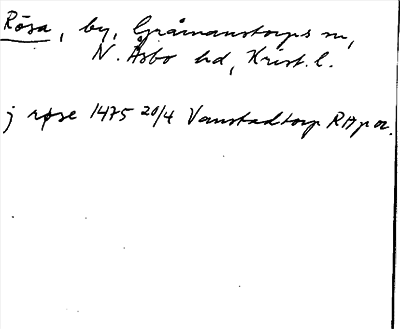 Rösa, by, Gråmanstorps sn,
N. Åsbo hd, Krist. l.
j røse 1475 20/4 Vanstadtorp RAp or.